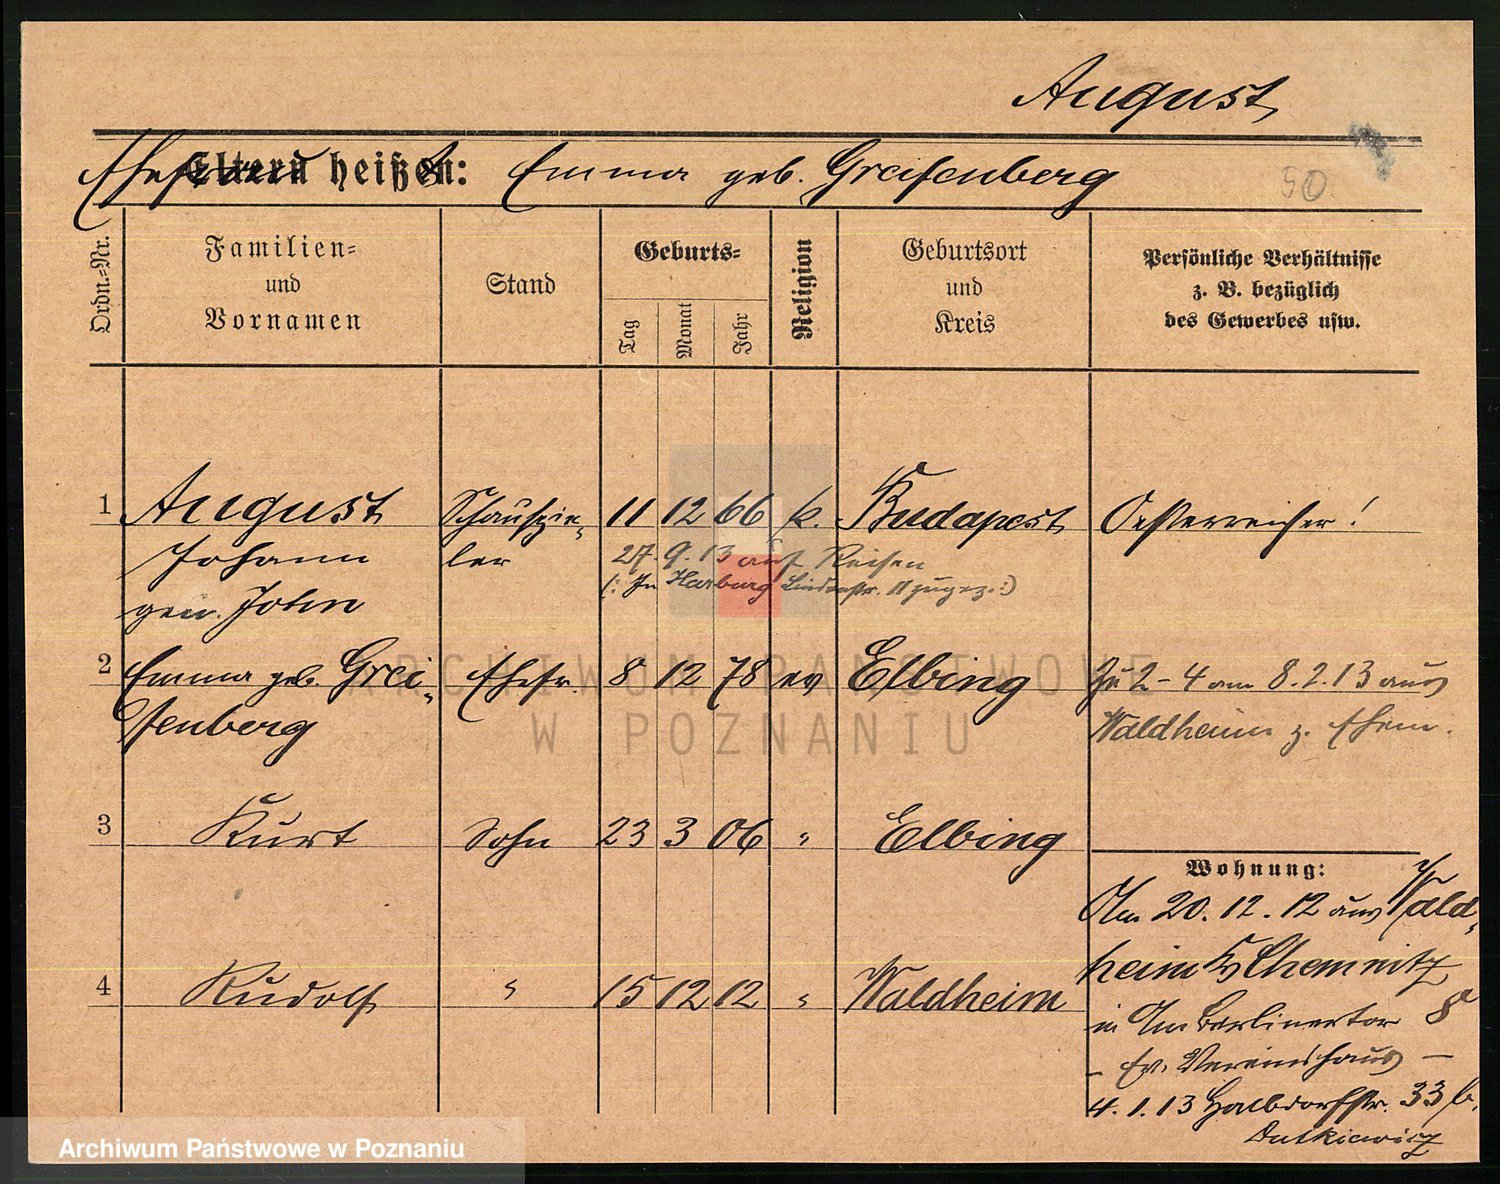 August
Eltern heißen: Emma geb. Greifenberg
50.
Ordn.=Nr.
Familien=
und
Vornamen
Stand
Geburts=
Tag
Monat
Jahr
Religion
Geburtsort
und
Kreis
Persönliche Verhältnisse
z. B. bezüglich
des Gewerbes usw.
1 August Schauspie- 11 12 66 k. Budapest Oesterreicher!
Johann ler 27. 9. 13 auf Reisen
gen. John (: In Harburg Lindenstr. 11 zugez. :)
2 Emma geb. Grei- Ehefr. 8 12 78 ev Elbing Zu 2 - 4 am 8. 2. 13 aus
fenberg Waldheim z. Ehem.
3 Kurt Sohn 23 3 06 " Elbing
Wohnung:
Am 20. 12. 12 aus Wald-
heim Chemnitz
4 Rudolf " 15 12 12 " Waldheim
in Am Berlinertor 8
- Ev. Vereinshaus -
4. 1. 13 Halbdorfstr. 33 b.
Dutkiewicz
ARCHIWUM PAŃSTWOWE
W POZNANIU
Archiwum Państwowe w Poznaniu